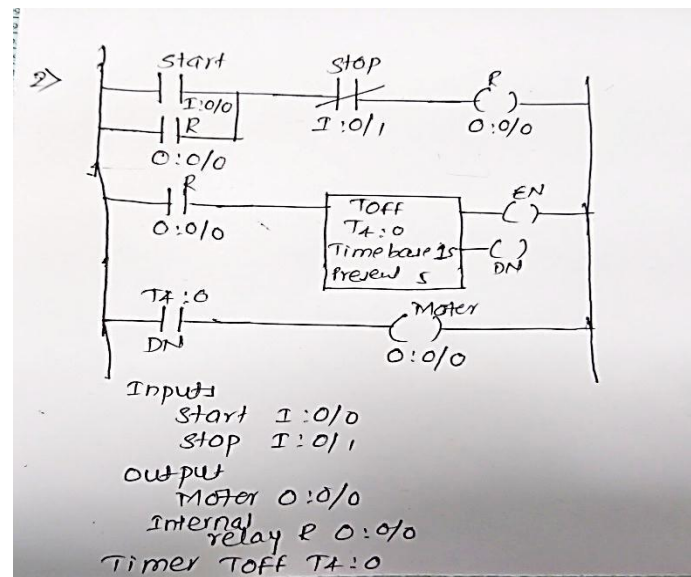 2>
Start
Stop
R
I:0/0
I:0/1
O:0/0
R
O:0/0
R
O:0/0
TOFF
T4:0
Time base 1s
Preset 5
EN
DN
T4:0
DN
Moter
O:0/0
Inputs
Start I:0/0
Stop I:0/1
output
Moter O:0/0
Internal
relay R O:0/0
Timer TOFF T4:0